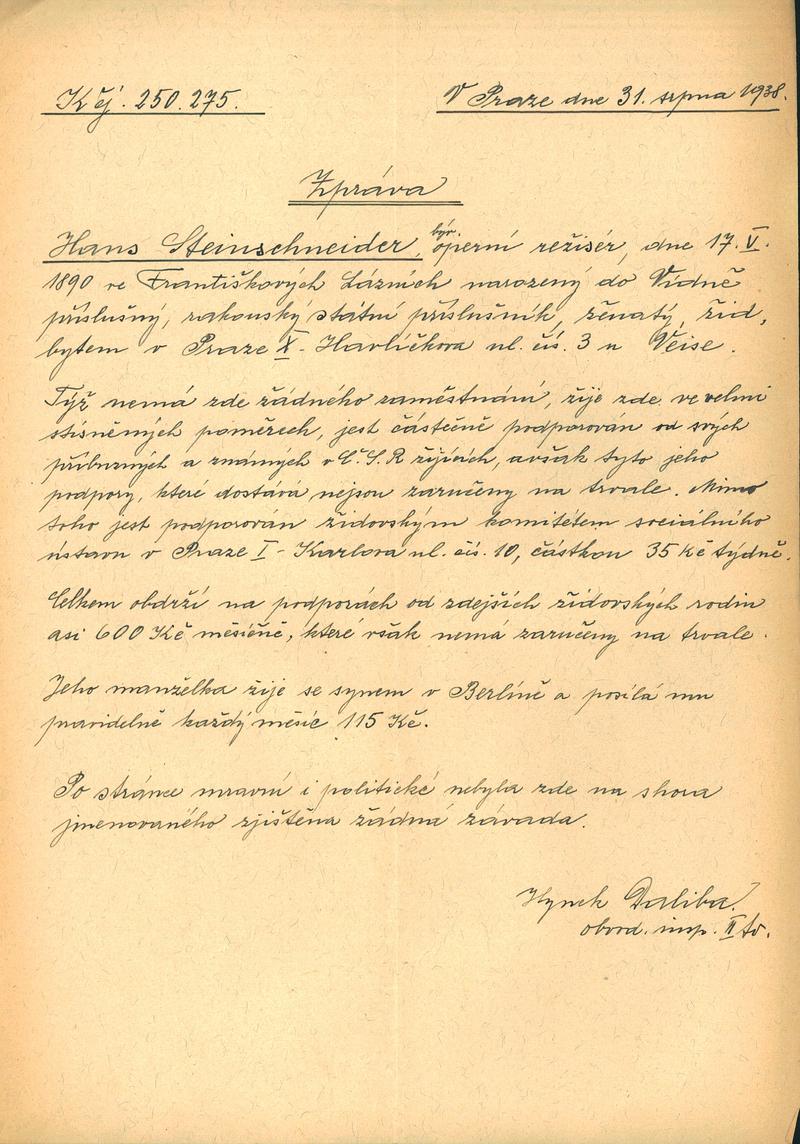 K čj. 250.275.
V Praze dne 31. srpna 1938.
Zpráva
býv.
Hans Steinschneider, operní režisér, dne 17. V.
1890 ve Františkových Lázních narozený do Vídně
příslušný, rakouský státní příslušník, ženatý, žid,
bytem v Praze X - Havlíčkova ul. čís. 3 u Véise.
Týž nemá zde žádného zaměstnání, žije zde ve velmi
stísněných poměrech, jest částečně podporován od svých
příbuzných a známých v Č.S.R žijících, avšak tyto jeho
podpory, které dostává nejsou zaručeny na trvale. Mimo
toho jest podporován židovským komitétem sociálního
ústavu v Praze I - Karlova ul. čís. 10, částkou 35 Kč týdně.
Celkem obdrží na podporách od zdejších židovských rodin
asi 600 Kč měsíčně, které však nemá zaručeny na trvale.
Jeho manželka žije se synem v Berlíně a posílá mu
pravidelně každý měsíc 115 Kč.
Po stránce mravní i politické nebyla zde na shora
jmenovaného zjištěna žádná závada.
Hynek Daliba.
obvod. insp. II